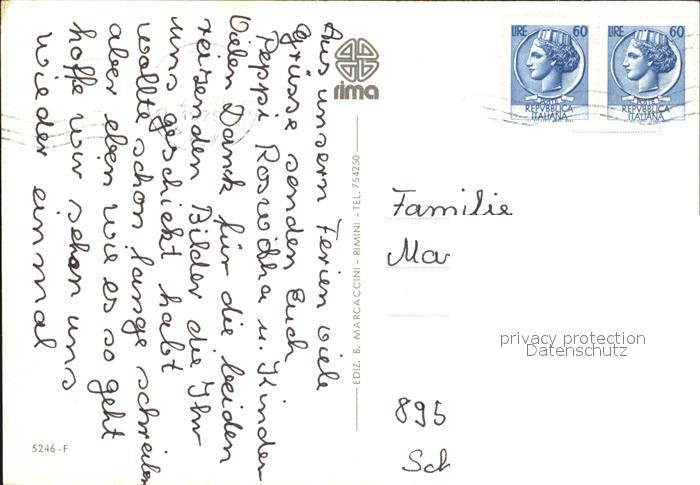 Aus unsern Ferien viele
Grüsse senden Euch
Peppi Roswitha u. Kinder
Vielen Dank für die beiden
reizenden Bilder die Ihr
uns geschickt habt
wollte schon lange schreiben
aber eben wie es so geht
hoffe wir sehen uns
wieder einmal
5246-F
rima
EDIZ. B. MARCACCINI - RIMINI - TEL. 754250
LIRE 60
POSTE
REPVBBLICA
ITALIANA
LIRE 60
POSTE
REPVBBLICA
ITALIANA
Familie
Mar
privacy protection
Datenschutz
895
Sch